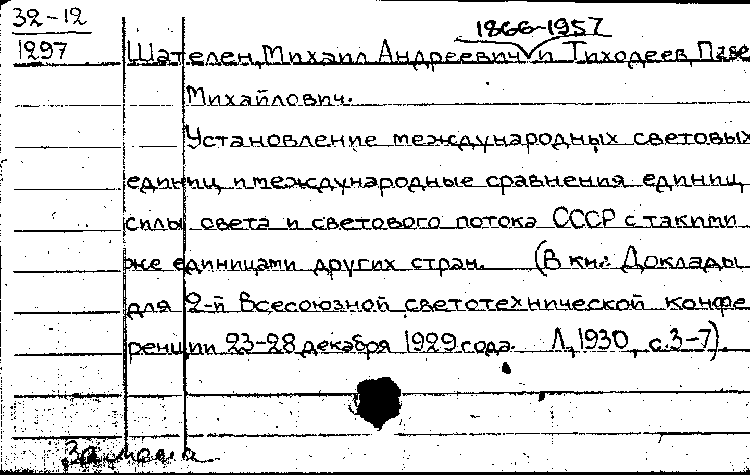 32-12
1297
1866-1957
Шателен, Михаил Андреевич и Тиходеев, Паве
Михайлович.
Установление международных световых
единиц и международные сравнения единиц
силы света и светового потока СССР с такими
же единицами других стран. (В кн.: Доклады
для 2-й Всесоюзной светотехнической конфе
ренции 23-28 декабря 1929 года. Л, 1930, с. 3-7).